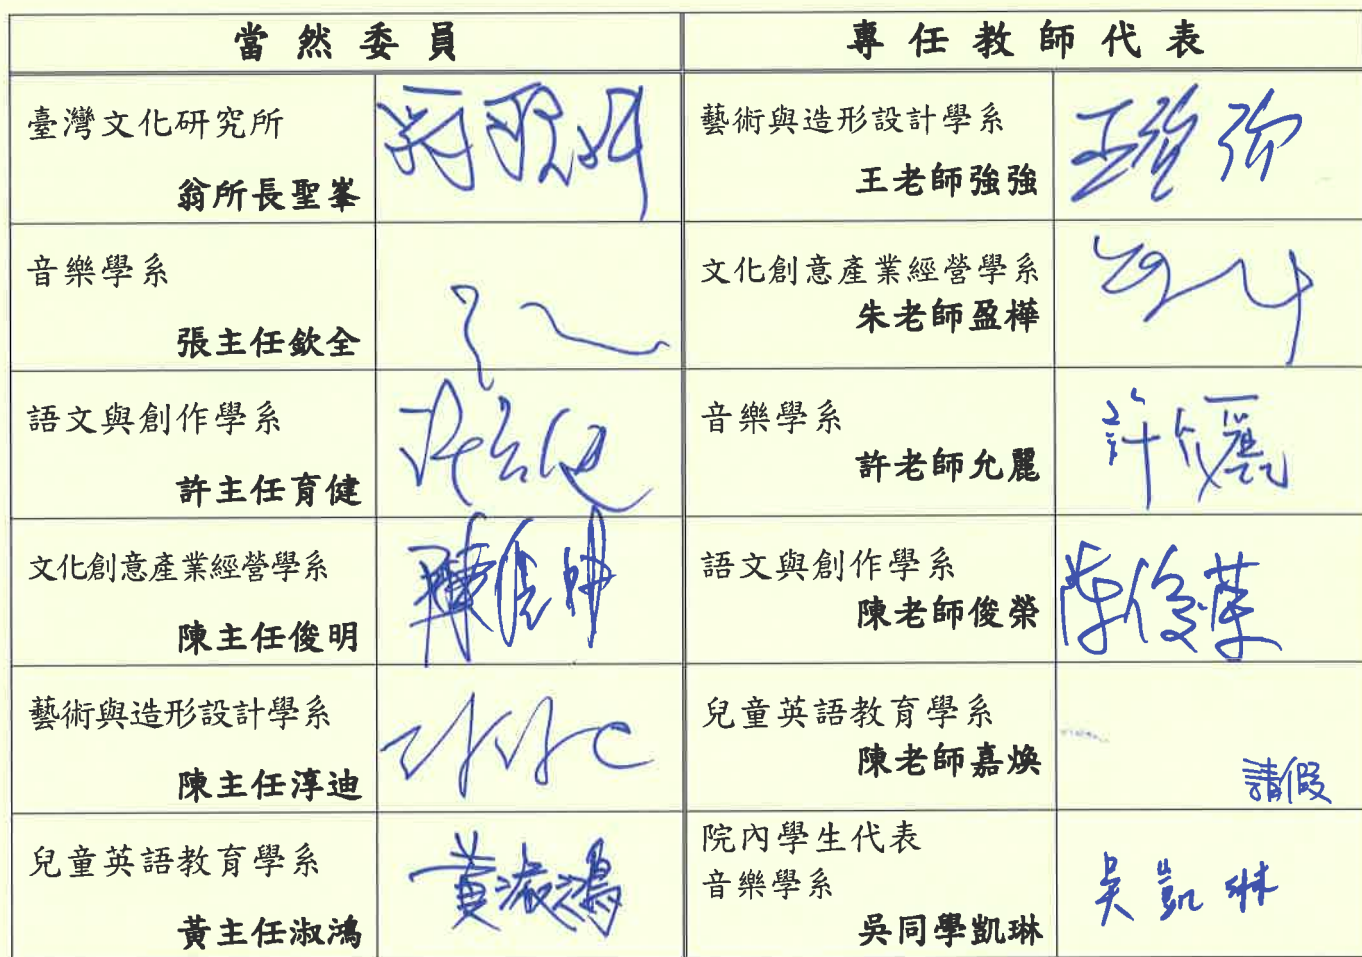 當然委員
專任教師代表
臺灣文化研究所
翁所長聖峯
藝術與造形設計學系
王老師強強
王強強
音樂學系
張主任欽全
文化創意產業經營學系
朱老師盈樺
語文與創作學系
許主任育健
音樂學系
許老師允麗
許允麗
文化創意產業經營學系
陳主任俊明
語文與創作學系
陳老師俊榮
陳俊榮
藝術與造形設計學系
陳主任淳迪
兒童英語教育學系
陳老師嘉煥
請假
兒童英語教育學系
黃主任淑鴻
黃淑鴻
院內學生代表
音樂學系
吳同學凱琳
吳凱琳